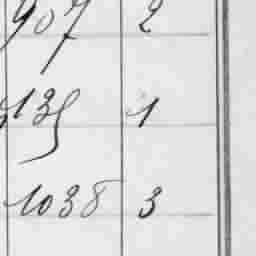 907 2
135 1
1038 3